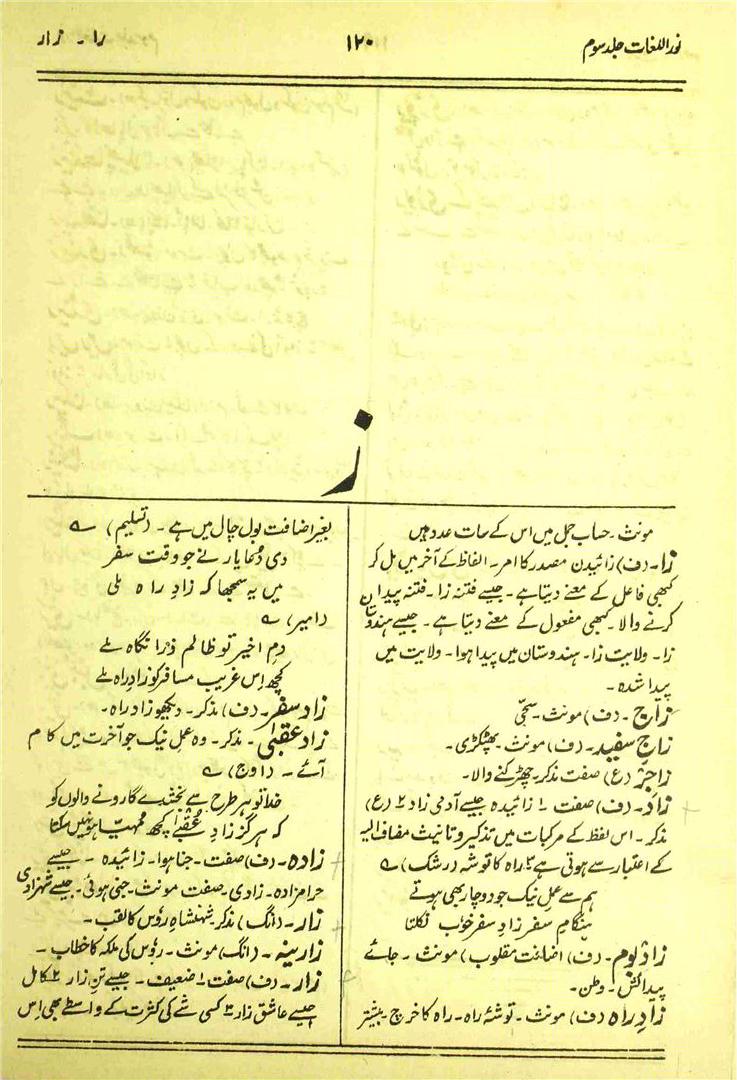 نور اللغات جلد سوم
۱۲۰
را - زار
ز
مونث - حساب جمل میں اس کے سات عدد ہیں
زا - (ف) زائیدن مصدر کا امر - الفاظ کے آخر میں مل کر
کبھی فاعل کے معنے دیتا ہے - جیسے فتنہ زا - فتنہ پیدا
کرنے والا - کبھی مفعول کے معنے دیتا ہے - جیسے ہندوستان
زا - ولایت زا - ہندوستان میں پیدا ہوا - ولایت میں
پیدا شدہ -
زاج - (ف) مونث - سجّی
زاجِ سفید - (ف) مونث - پھٹکڑی -
زاجِر (ع) صفت مذکر - جھڑکنے والا -
زاد - (ف) صفت ۱ زائیدہ جیسے آدمی زاد ۲ (ع)
مذکر - اس لفظ کے مرکبات میں تذکیر و تانیث مضاف الیہ
کے اعتبار سے ہوتی ہے ۳ راہ کا توشہ (رشک) ؎
ہم سے عمل نیک جو دوچار بھی ہوتے
ہنگامِ سفر زادِ سفر خوب نکلتا
زاد بوم - (ف) اضافت مقلوب) مونث - جائے
پیدائش - وطن -
زادِ راہ (ف) مونث - توشۂ راہ - راہ کا خرچ - بیشتر
بغیر اضافت بول چال میں ہے - (تسلیم) ؎
دی دُعا یار نے جو وقت سفر
میں یہ سمجھا کہ زادِ راہ ملی
(امیر) ؎
دمِ اخیر تو ظالم ذرا نگاہ ملے
کچھ اِس غریب مسافر کو زادِ راہ ملے
زادِ سفر - (ف) مذکر - دیکھو زاد راہ -
زادِ عقبیٰ - مذکر - وہ عمل نیک جو آخرت میں کام
آئے - (اوج) ؎
خدا تو ہر طرح سے بخشدے گا رونے والوں کو
کہ ہرگز زادِ عُقبےٰ کچھ مہیّا ہو نہیں سکتا
زادہ - (ف) صفت - جنا ہوا - زائیدہ - جیسے
حرامزادہ - زادی - صفت مونث - جنی ہوئی - جیسے شہزادی
زار - (انگ) مذکر - شہنشاہِ روس کا لقب -
زارینہ - (انگ) مونث - روس کی ملکہ کا خطاب -
زار - (ف) صفت ۱ ضعیف - جیسے تنِ زار ۲ کامل
جیسے عاشق زار ۳ کسی شے کی کثرت کے واسطے بھی اِس